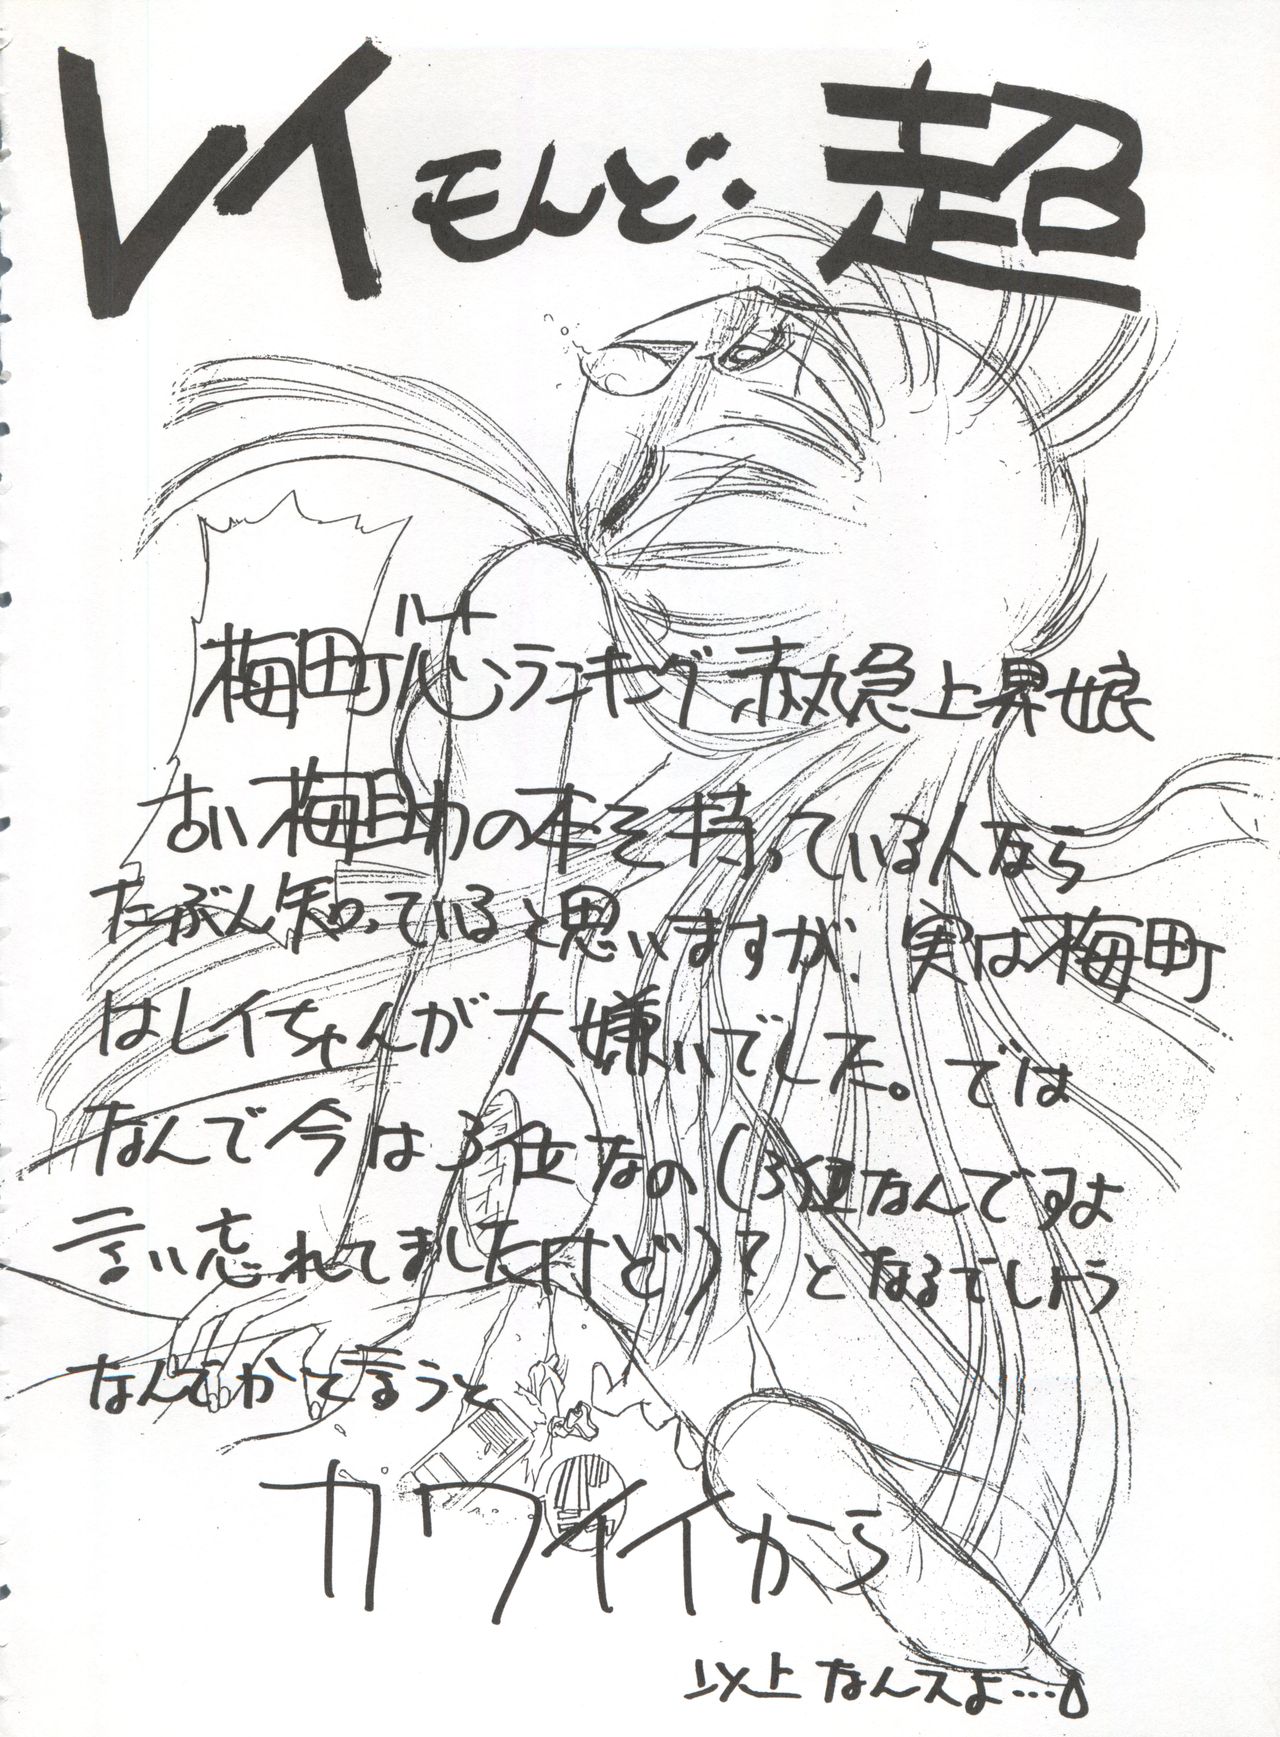 レイもんど・超
梅田町芯ランキング赤丸急上昇娘
ハート
古い梅田助の本を持っている人なら
たぶん知っていると思いますが、実は梅田町
はレイちゃんが大嫌いでした。では
なんで今は3位なの(3位なんですよ
言い忘れてましたけど)?となるでしょう
なんでかって言うと
カワイイから
以上なんスよ…。